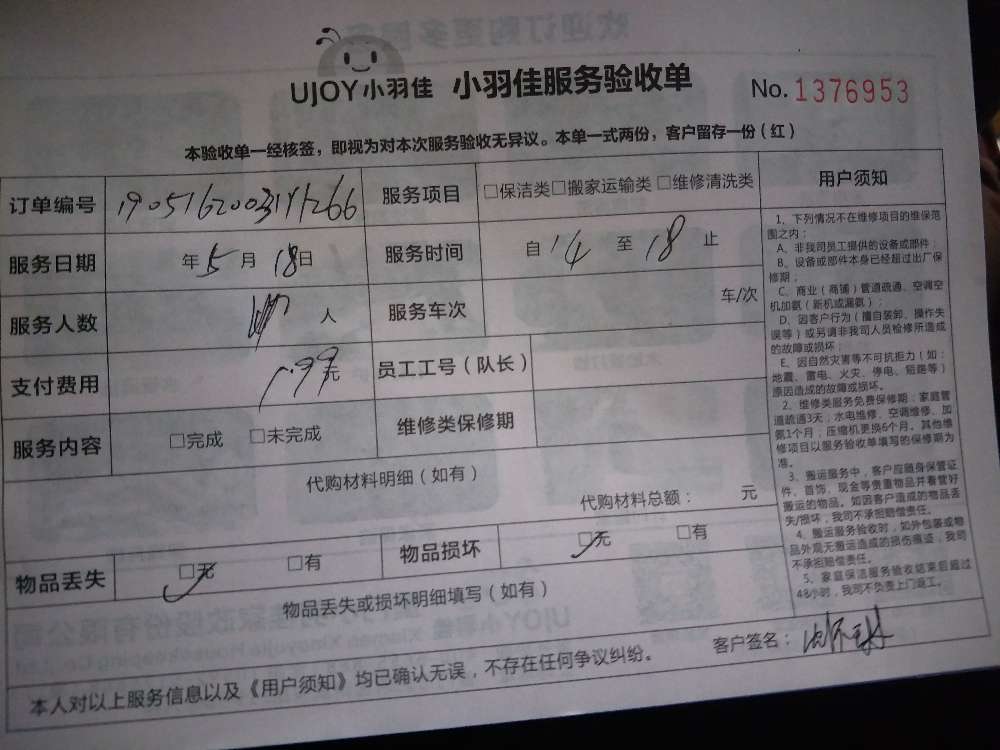 UJOY小羽佳 小羽佳服务验收单 No. 1376953
本验收单一经核签，即视为对本次服务验收无异议。本单一式两份，客户留存一份（红）
订单编号 服务项目 □保洁类□搬家运输类 □维修清洗类
服务日期 年 5 月 18 日 服务时间 自 14 至 18 止
服务人数 人 服务车次 车/次
支付费用 元 员工工号（队长）
服务内容 □完成 □未完成 维修类保修期
代购材料明细（如有）
代购材料总额： 元
物品丢失 □无 □有 物品损坏 □无 □有
物品丢失或损坏明细填写（如有）
客户签名：
本人对以上服务信息以及《用户须知》均已确认无误，不存在任何争议纠纷。
用户须知
1、下列情况不在维修项目的维保范
围之内：
A、非我司员工提供的设备或部件；
B、设备或部件本身已经超过出厂保
修期；
C、商业（商铺）管道疏通、空调空
机加氨（新机或漏氨）；
D、因客户行为（擅自装卸、操作失
误等）或另请非我司人员检修所造成
的故障或损坏；
E、因自然灾害等不可抗拒力（如：
地震、雷电、火灾、停电、短路等）
原因造成的故障或损坏。
2、维修类服务免费保修期：家庭管
道疏通3天；水电维修、空调维修、加
氨1个月；压缩机更换6个月。其他维
修项目以服务验收单填写的保修期为
准。
3、搬运服务中，客户应随身保管证
件、首饰、现金等贵重物品并看管好
搬运的物品。如因客户造成的物品丢
失/损坏，我司不承担赔偿责任。
4、搬运服务验收时，如外包装或物
品外观无搬运造成的损伤痕迹，我司
不承担赔偿责任。
5、家庭保洁服务验收结束后超过
48小时，我司不负责上门返工。